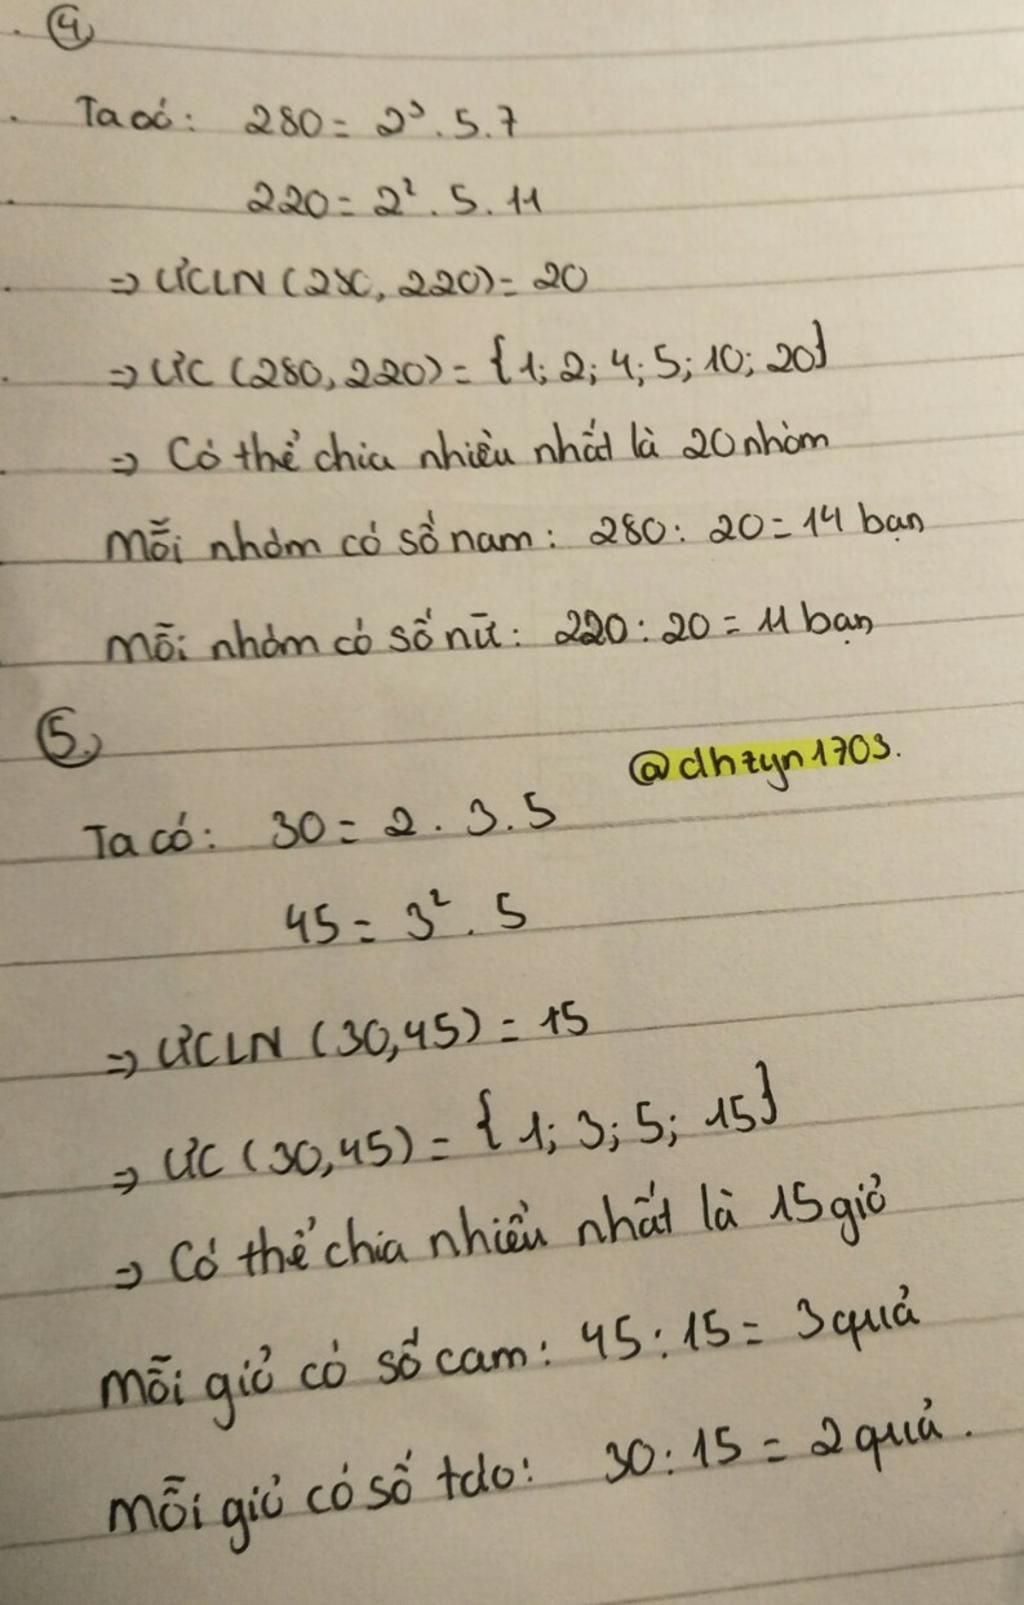 ④
Ta có: 280 = 2³. 5. 7
220 = 2². 5. 11
⇒ ƯCLN (280, 220) = 20
⇒ ƯC (280, 220) = {1; 2; 4; 5; 10; 20}
⇒ Có thể chia nhiều nhất là 20 nhóm
Mỗi nhóm có số nam: 280 : 20 = 14 bạn
Mỗi nhóm có số nữ: 220 : 20 = 11 bạn
⑤
@dhzyn1703.
Ta có: 30 = 2. 3. 5
45 = 3². 5
⇒ ƯCLN (30,45) = 15
⇒ ƯC (30,45) = {1; 3; 5; 15}
⇒ Có thể chia nhiều nhất là 15 giỏ
Mỗi giỏ có số cam: 45 : 15 = 3 quả
Mỗi giỏ có số táo: 30 : 15 = 2 quả.